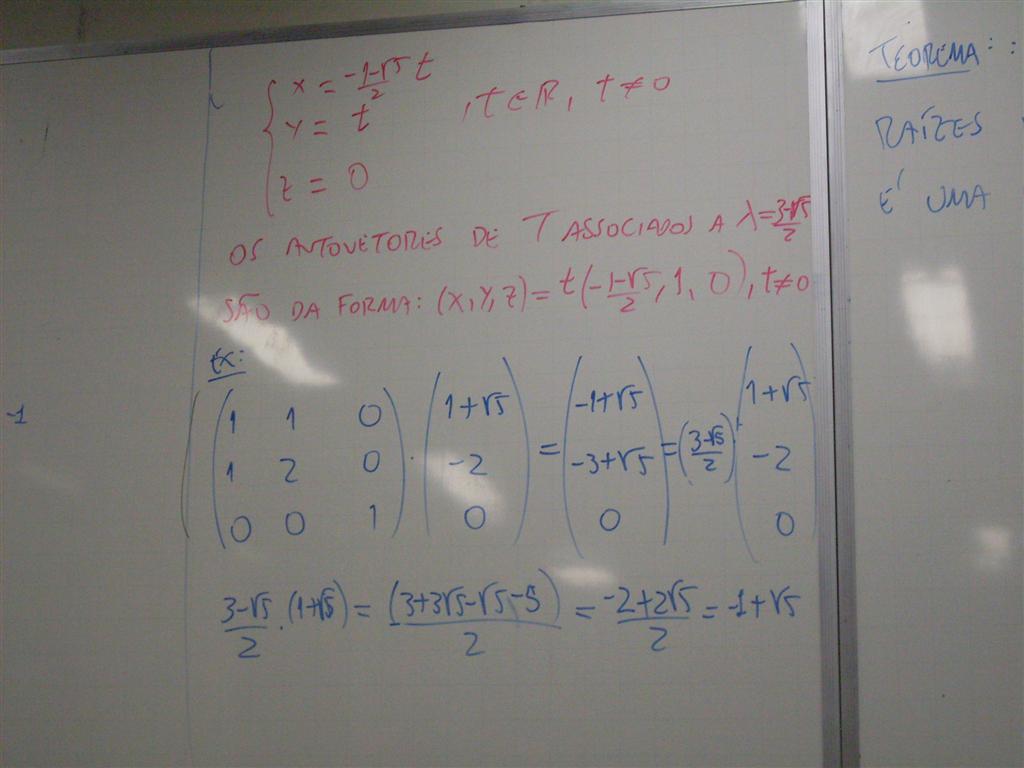 x = -1-√5/2 t
y = t , t ∈ R, t ≠ 0
z = 0
OS AUTOVETORES DE T ASSOCIADOS A λ = 3-√5/2
SÃO DA FORMA: (x, y, z) = t(-1-√5/2, 1, 0), t ≠ 0
Ex:
-1
(1 1 0) (1+√5) (-1+√5) (1+√5)
(1 2 0) · (-2) = (-3+√5) = (3-√5/2) · (-2)
(0 0 1) (0) (0) (0)
3-√5/2 · (1+√5) = (3+3√5-√5-5)/2 = -2+2√5/2 = -1+√5
TEOREMA:
RAÍZES
É UMA